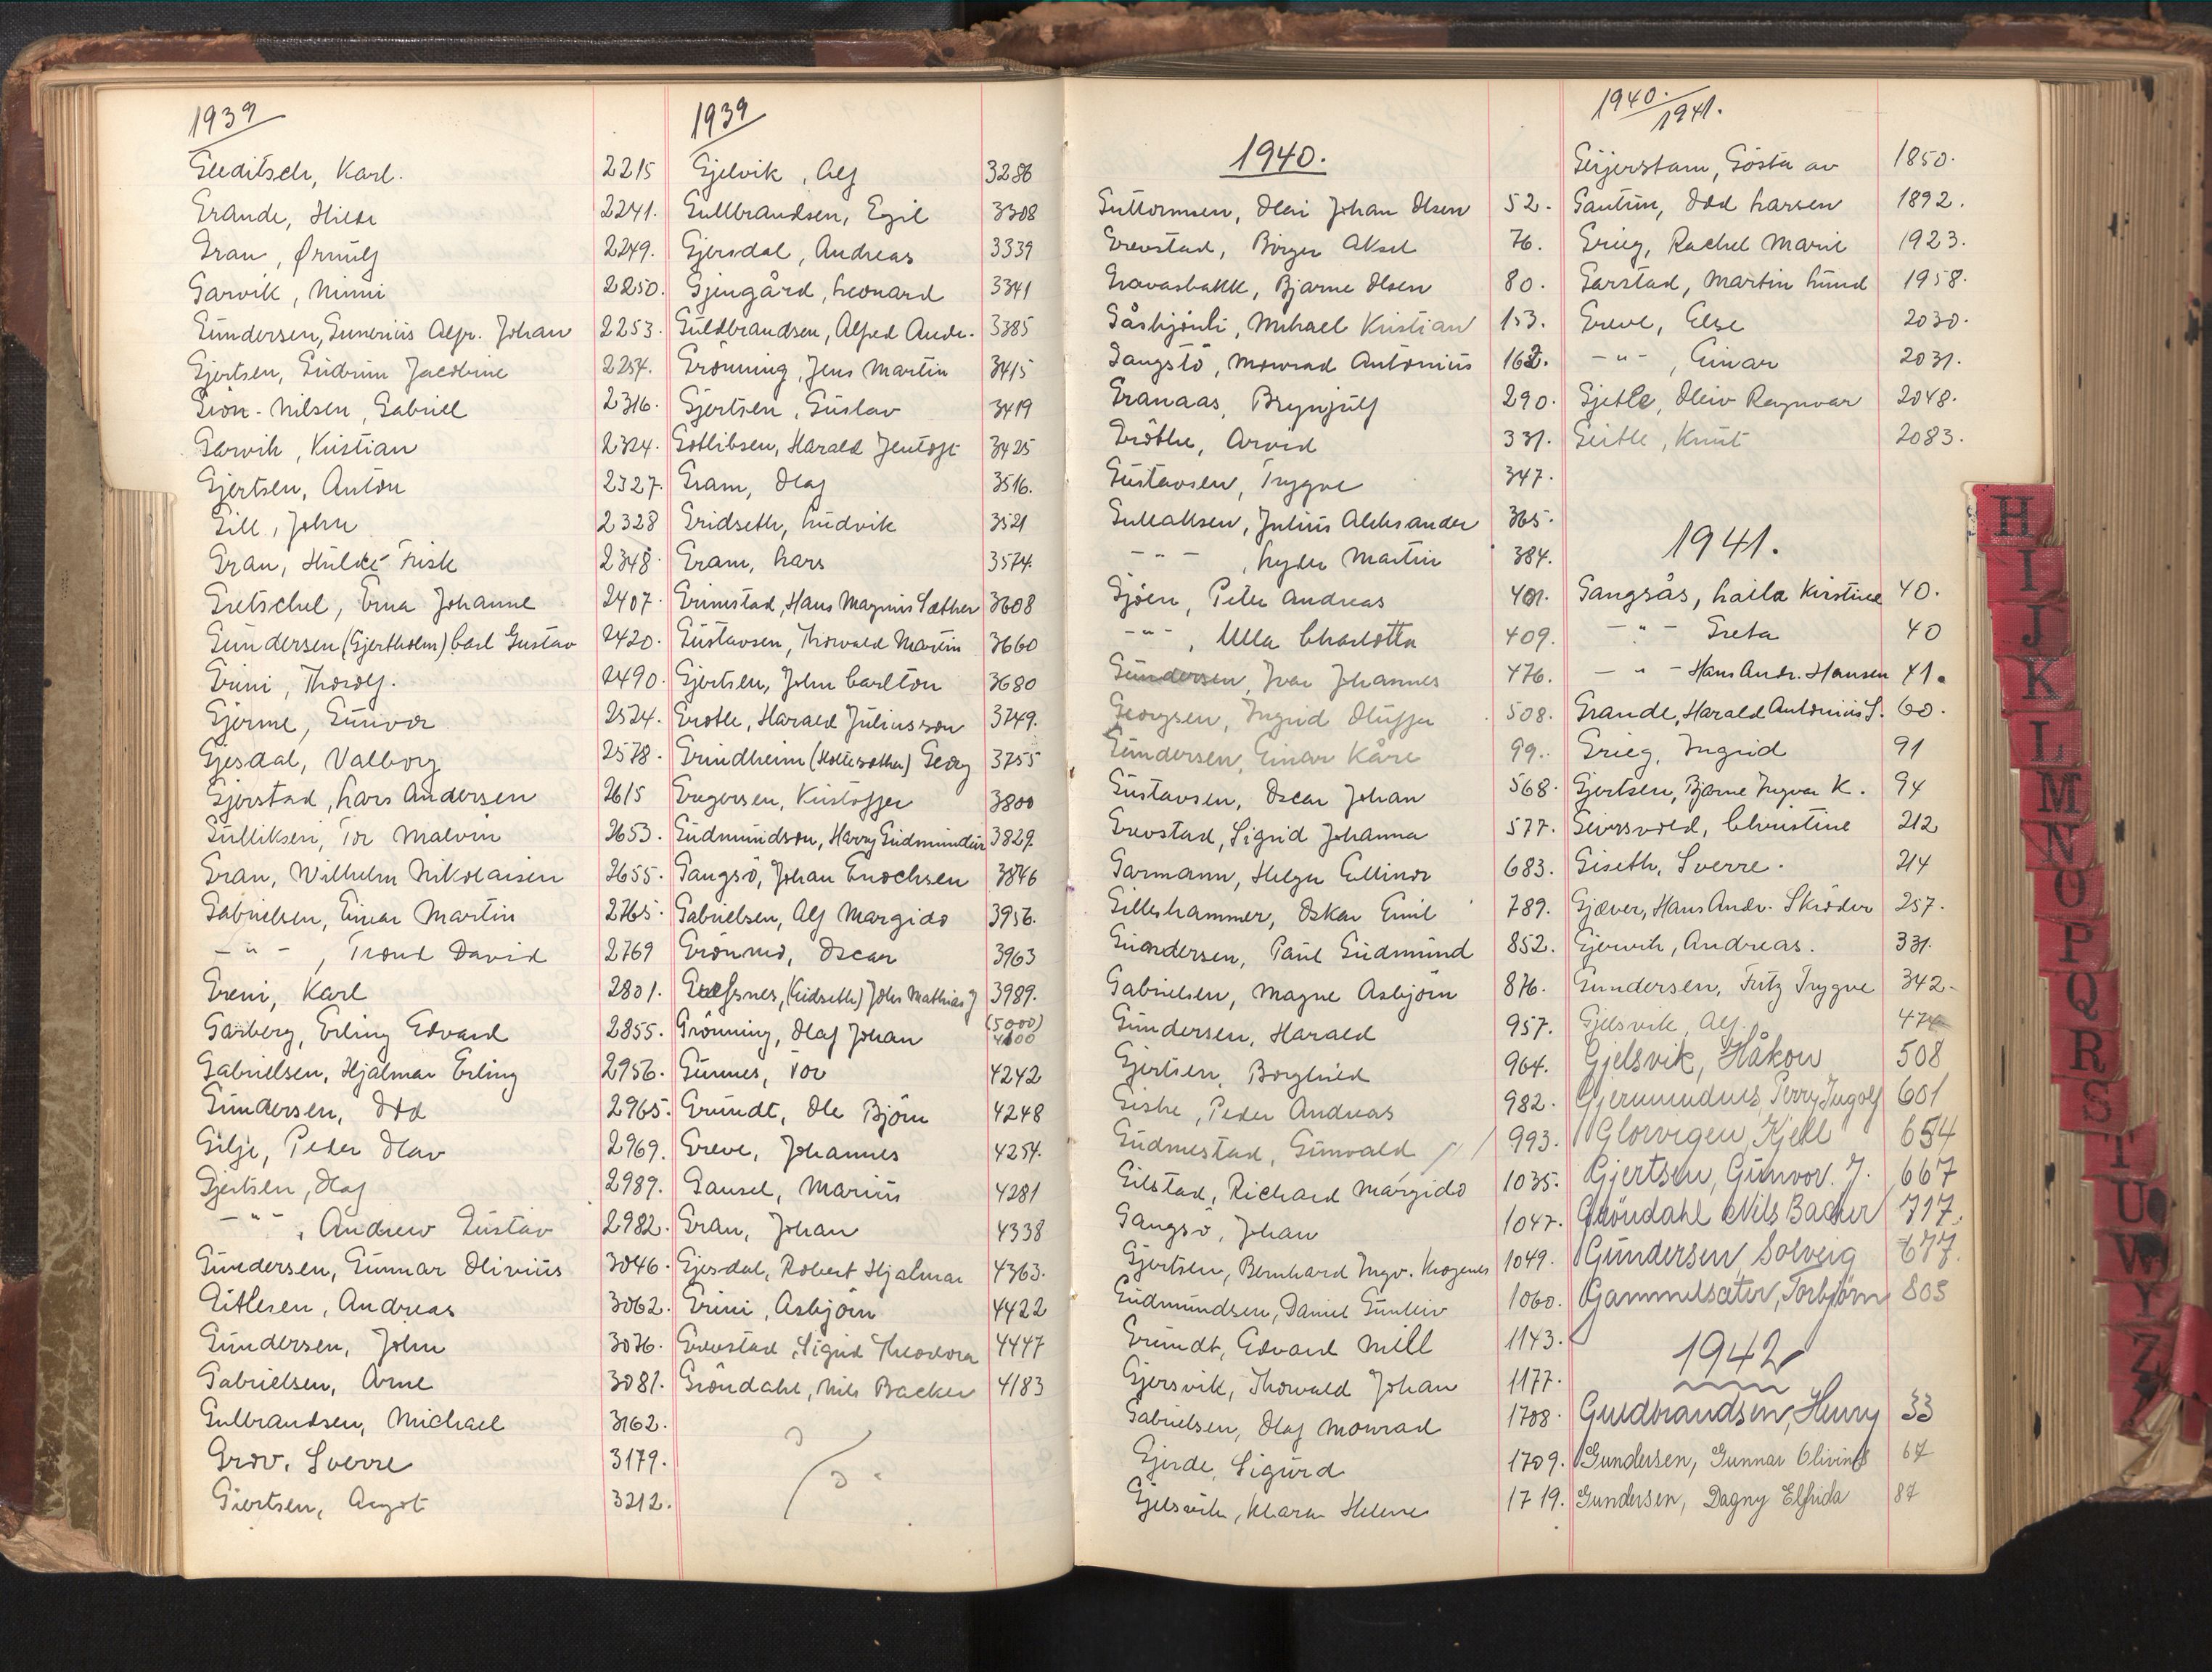 1939
Gleditsch, Karl. 2215
Grande, Hilda 2241.
Gran, Ørnulf 2249.
Garvik, Minni 2250.
Gundersen, Gunerius Alfr. Johan 2253.
Gjertsen, Gudrun Jacobine 2254.
Grön-Nilsen, Gabriel 2316.
Garvik, Kristian 2324.
Gjertsen, Anton 2327.
Gill, John 2328
Gran, Hulda Frisk 2348.
Gretschel, Erna Johanne 2407.
Gundersen (Gjertholm) Carl Gustav 2420.
Grini, Thorolf. 2490.
Gjerme, Gunvor 2524.
Gjesdal, Valborg 2578.
Gjerstad, Lars Andersen 2615
Gulliksen, Tor Malvin 2653.
Gran, Wilhelm Nikolaisen 2655.
Gabrielsen, Einar Martin 2765.
- " - , Trond David 2769
Greni, Karl 2801.
Garberg, Erling Edvard 2855.
Gabrielsen, Hjalmar Erling 2956.
Gundersen, Odd 2965.
Gilje, Peder Olav 2969.
Gjertsen, Olaf 2989.
- " - , Andrew Gustav 2982.
Gundersen, Gunnar Olivius 3046.
Gitlesen, Andreas 3062.
Gundersen, John 3076.
Gabrielsen, Arne 3081.
Gulbrandsen, Michael 3162.
Grov, Sverre 3179.
Gjertsen, Aagot 3212.
1939
Gjelvik, Alf 3286
Gullbrandsen, Egil 3308
Gjersdal, Andreas 3339
Gjengård, Leonard 3341
Guldbrandsen, Alfred Andr. 3385
Grönning, Jens Martin 3415
Gjertsen, Gustav 3419
Gotlibsen, Harald Jentoft 3425
Gram, Olaf 3516.
Gridseth, Ludvik 3521
Gram, Lars 3574.
Grimstad, Hans Magnus Sæther 3608
Gustavsen, Thorvald Martin 3660
Gjertsen, John Carlton 3680
Grotle, Harald Juliusson 3749.
Grindheim (Hollesother) Georg 3755
Gregersen, Kristoffer 3800
Gudmundson, Harry Gudmundur 3829.
Gangsö, Johan Enochsen 3846
Gabrielsen, Alf Margido 3956.
Grönmo, Oscar 3963
(Gridseth) John Mathias J 3989.
Grönning, Olaf Johan (5000) 4100
Gunnes, Tor 4242
Grundt, Ole Björn 4248
Greve, Johannes 4254.
Gausel, Marius 4281
Gran, Johan 4338
Gjesdal, Robert Hjalmar 4363.
Grini, Asbjörn 4422
Grevstad, Sigrid Theodora 4447
Gröndahl, Nils Backer 4183
1940.
Guttormsen, Olai Johan Olsen 52.
Grevstad, Birger Aksel 76.
Gravasbakk, Bjarne Olsen 80.
Gåsbjönli, Mikael Kristian 153.
Gangstö, Monrad Antonius 162.
Granaas, Brynjulf 290.
Grötle, Arvid 331.
Gustavsen, Trygve 347.
Gullaksen, Julius Aleksander 365.
- " - , Lyder Martin 384.
Gjöen, Peter Andreas 401.
- " - , Ulla Charlotta 409.
Gundersen, Ivar Johannes 476.
Georgsen, Ingrid Oluffa 508.
Gundersen, Einar Kåre 99.
Gustavsen, Oscar Johan 568.
Grevstad, Sigrid Johanna 577.
Garmann, Helga Ellinor 683.
Gilleshammer, Oskar Emil 789.
Gundersen, Paul Gudmund 852.
Gabrielsen, Magne Asbjörn 876.
Gundersen, Harald 957.
Gjertsen, Borghild 964.
Giske, Peder Andreas 982.
Gudmestad, Gunvald 993.
Gilstad, Richard Margido 1035.
Gangsö, Johan 1047.
Gjertsen, Bernhard Ingv. Krogenes 1049.
Gudmundsen, Daniel Gunleiv 1060.
Grundt, Edvard Mill 1143.
Gjersvik, Thorvald Johan 1177.
Gabrielsen, Olaf Monrad 1708.
Gjerde, Sigurd 1709.
Gjelsvik, Klara Helene 1719.
1940.
1941.
Geijerstam, Gösta av 1850.
Gautun, Odd Larsen 1892.
Grieg, Rachel Marie 1923.
Garstad, Martin Lund 1958.
Greve, Else 2030.
- " - , Einar 2031.
Gjetle, Oleiv Ragnvar 2048.
Geitle, Knut 2083.
1941.
Gangsås, Laila Kirstine 40.
- " - Greta 40
- " - Hans Andr. Hansen 41.
Grande, Harald Antonius S. 60.
Grieg, Ingrid 91
Gjertsen, Bjarne Ingvar K. 94
Geirsvold, Christine 212
Giseth, Sverre. 214
Gjæver, Hans Andr. Skröder 257.
Gjervik, Andreas. 331.
Gundersen, Fritz Trygve 342.
Gjelsvik, Alf. 474
Gjelsvik, Håkon 508
Gjermundnes, Perry Ingolf 601
Glorvigen, Kjell 654
Gjertsen, Gunvor. J. 667
Gröndahl Nils Backer 717.
Gundersen, Solveig 677.
Gammelsæter, Torbjörn 805
1942
Guldbrandsen, Henry 33
Gundersen, Gunnar Olivius 67
Gundersen, Dagny Elfrida 87
H
I
J
K
L
M
N
O
P
Q
R
S
T
U
W
Y
Z